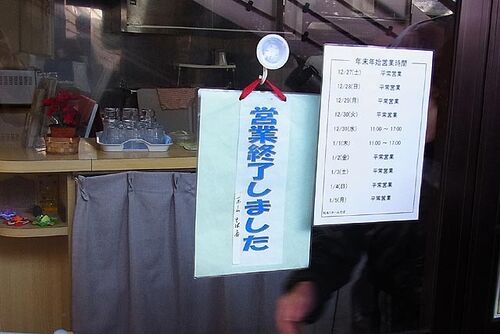 営業終了しました
年末年始営業時間
12/27(土) 平常営業
12/28(日) 平常営業
12/29(月) 平常営業
12/30(火) 平常営業
12/31(水) 11:00 ～ 17:00
1/1(木) 11:00 ～ 17:00
1/2(金) 平常営業
1/3(土) 平常営業
1/4(日) 平常営業
1/5(月) 平常営業